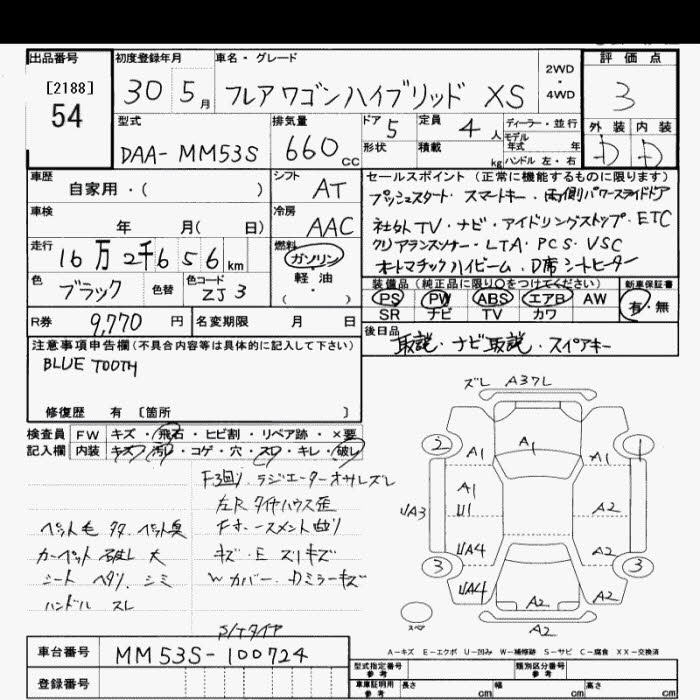 出品番号
[2188]
54
初度登録年月
30 5月
車名・グレード
フレアワゴンハイブリッド XS
2WD
・
4WD
評価点
3
型式
DAA-MM53S
排気量
660cc
ドア 5
形状
定員 4人
積載 kg
ディーラー・並行
モデル
年式 年
ハンドル 左・右
外装 内装
D D
車歴
自家用・( )
シフト
AT
セールスポイント (正常に機能するものに限ります)
プッシュスタート・スマートキー・両側パワースライドドア
社外TV・ナビ・アイドリングストップ・ETC
クリアランスソナー・LTA・PCS・VSC
オートマチックハイビーム・D席シートヒーター
車検
年 月( 日)
冷房
AAC
走行
16万2千656km
燃料
ガソリン
軽・油
( )
色
ブラック
色替
色コード
ZJ3
装備品 (純正品に限り○をつけてください)
PS PW ABS エアB AW
SR ナビ TV カワ
新車保証書
有・無
R券 9,770円
名変期限 月 日
後日品
取説・ナビ取説・スペアキー
注意事項申告欄(不具合内容等は具体的に記入して下さい)
BLUE TOOTH
修復歴 有 〔箇所 〕
検査員
記入欄
FW キズ・飛石・ヒビ割・リペア跡・×要
内装 キズ・汚レ・コゲ・穴・スレ・キレ・破レ
F3回り、ラジエーターオサレズレ
左Rタイヤハウス歪
ペット毛 多々 ペット臭
カーペット破レ大
キズ・E スリキズ
シート ヘタリ、シミ
W カバー・Dミラーキズ
ハンドル スレ
S/Tタイヤ
ズレ A37L
2 1
A1 A1 A1
A1
U1
UA3
A2
UA4 A2
3 3
UA4 A2 A2
A2
スペア
A-キズ E-エクボ U-凹み W-補修跡 S-サビ C-腐食 XX-交換済
車台番号 MM53S-100724
登録番号
型式指定番号
参考
類別区分番号
参考
車庫証明用
参考
長さ cm 幅 cm 高さ cm